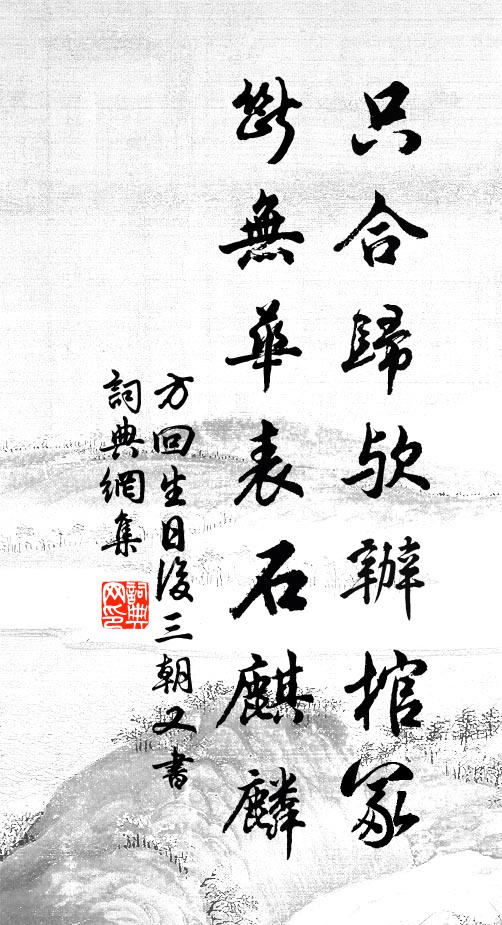 只合歸欤辦棺冢
斷無華表石麒麟
方回生日後三朝又書
詞典網集
詞典
网印